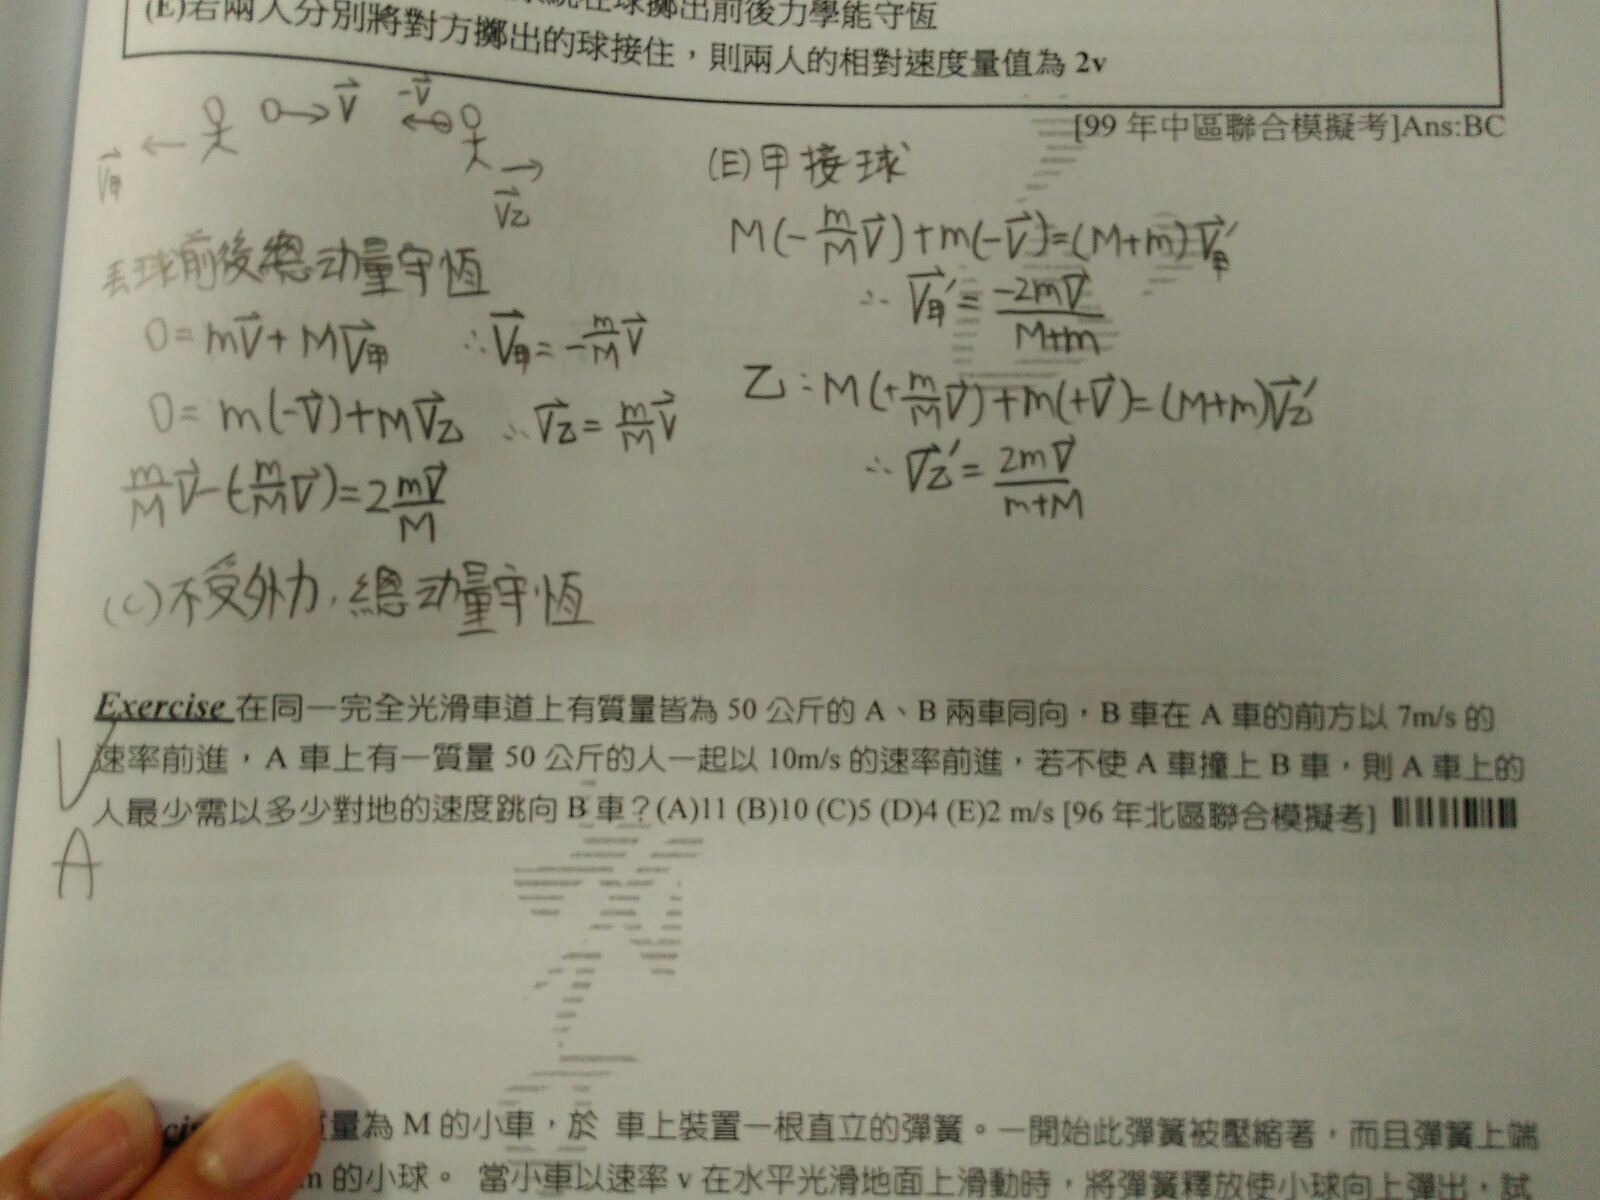 在球擲出前後力學能守恆
(E)若兩人分別將對方擲出的球接住，則兩人的相對速度量值為 2v
[99 年中區聯合模擬考]Ans:BC
V⃗
-V⃗
V⃗甲
V⃗乙
丟球前後總动量守恆
0=mV⃗+MV⃗甲 ∴V⃗甲=-m/M V⃗
0=m(-V⃗)+MV⃗乙 ∴V⃗乙=m/M V⃗
m/M V⃗-(-m/M V⃗)=2 mV⃗/M
(C)不受外力，總动量守恆
(E)甲接球
M(-m/M V⃗)+m(-V⃗)=(M+m)V⃗甲′
∴ V⃗甲′=-2mV⃗/M+m
乙：M(+m/M V⃗)+m(+V⃗)=(M+m)V⃗乙′
∴ V⃗乙′=2mV⃗/m+M
Exercise 在同一完全光滑車道上有質量皆為 50 公斤的 A、B 兩車同向，B 車在 A 車的前方以 7m/s 的
速率前進，A 車上有一質量 50 公斤的人一起以 10m/s 的速率前進，若不使 A 車撞上 B 車，則 A 車上的
人最少需以多少對地的速度跳向 B 車？(A)11 (B)10 (C)5 (D)4 (E)2 m/s [96 年北區聯合模擬考]
A
質量為 M 的小車，於 車上裝置一根直立的彈簧。一開始此彈簧被壓縮著，而且彈簧上端
m 的小球。 當小車以速率 v 在水平光滑地面上滑動時，將彈簧釋放使小球向上彈出，試